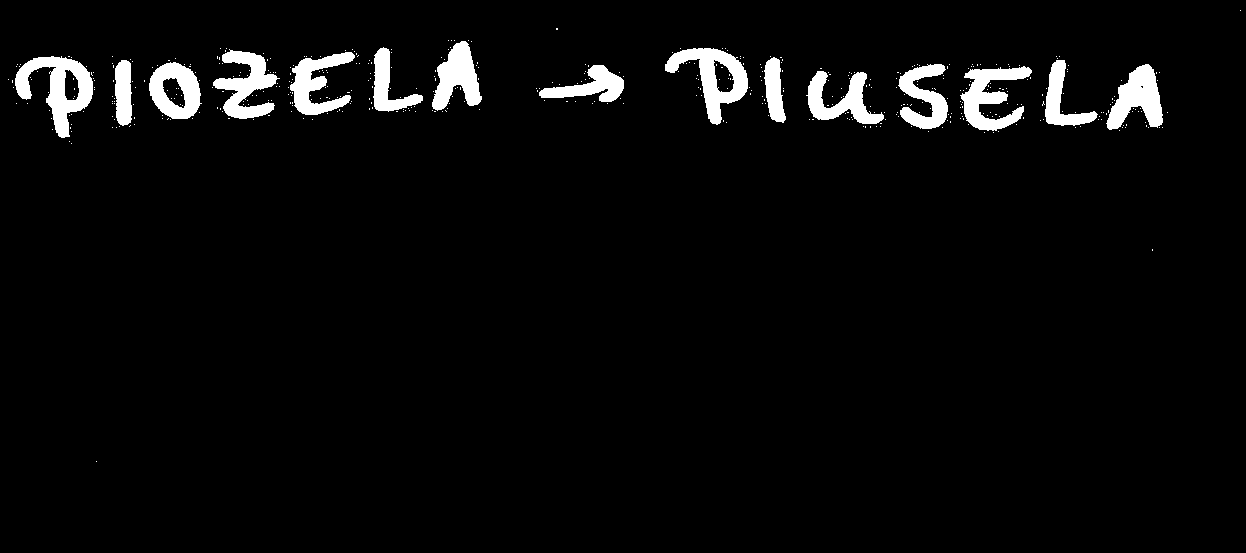 PIOZELA → PIUSELA